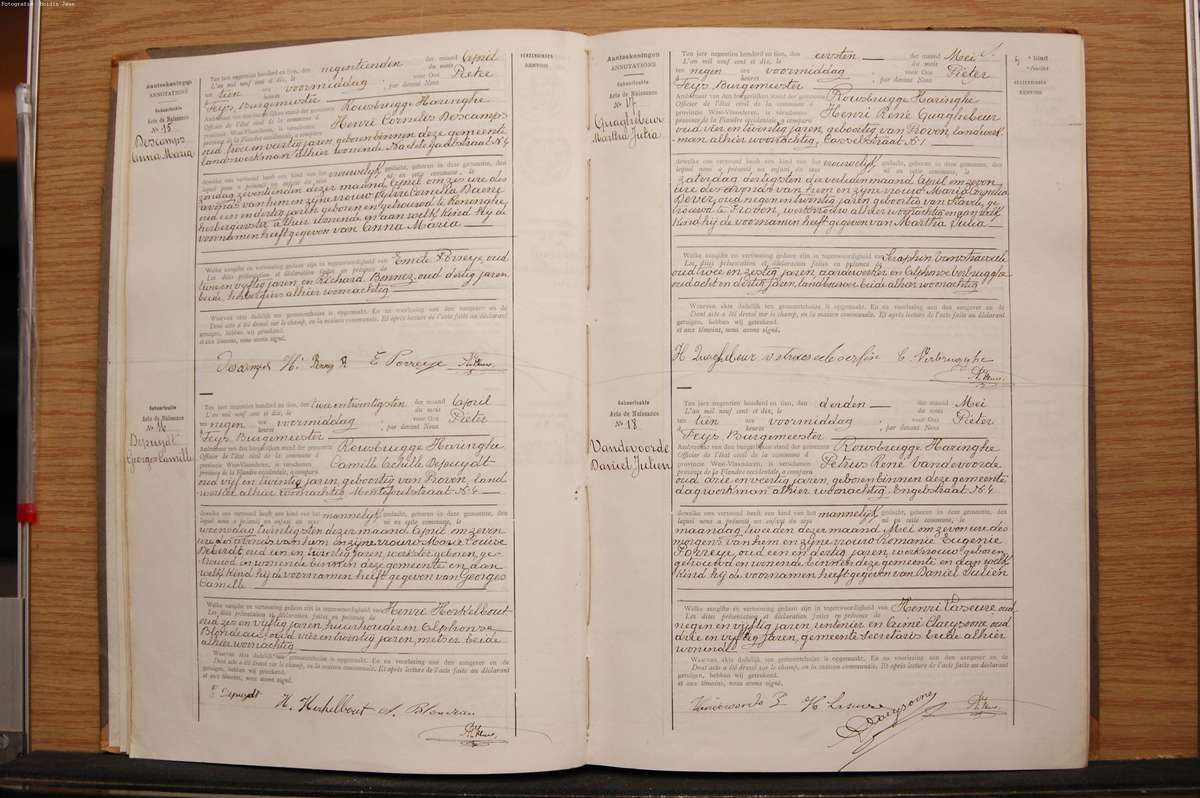 Fotografie: Boidin Jean
Aanteekeningen
ANNOTATIONS
VERZENDINGEN
RENVOIS
Geboorteakte
Acte de Naissance
N° 15
Descamps
Anna Maria
Ten jare negentien honderd en tien, den negentienden der maand April
L'an mil neuf cent et dix, le du mois
ten tien uren voormiddag voor Ons Pieter
à heures par devant Nous
Feys Burgemeester
Ambtenaar van den burgerlijken stand der gemeente Rousbrugge Haringhe
Officier de l'état civil de la commune d
provincie West-Vlaanderen, is verschenen Henri Cornelis Descamps
province de la Flandre occidentale, a comparu
oud twee en veertig jaren geboren binnen deze gemeente
landwerkman alhier wonende Nachtegaalstraat N. 4
dewelke ons vertoond heeft een kind van het vrouwelijk geslacht, geboren in deze gemeente, den
lequel nous a présenté un enfant du sexe né en cette commune, le
zondag zeventienden dezer maand April om zes ure des
avonds van hem en zijne vrouw Sylvie Cornelia Daene
oud een en dertig jaren geboren en gehuwd te Krombeke
herbergierster alhier wonende en aan welk kind hij de
voornamen heeft gegeven van Anna Maria
Welke aangifte en vertooning gedaan zijn in tegenwoordigheid van Emile Porreye, oud
Les dites présentation et déclaration faites en présence de
twee en vijftig jaren en Richard Bonnez, oud dertig jaren
beide herbergiers alhier woonachtig
Waarvan akte dadelijk ten gemeentehuize is opgemaakt. En na voorlezing aan den aangever en de
Dont acte a été dressé sur le champ, en la maison communale. Et après lecture de l'acte faite au déclarant
getuigen, hebben wij geteekend.
et aux témoins, nous avons signé.
Descamps H. Bonnez R E Porreye P. Feys.
Geboorteakte
Acte de Naissance
N° 16
Depuydt
Georges Camille
Ten jare negentien honderd en tien, den tweentwintigsten der maand April
L'an mil neuf cent et dix, le du mois
ten negen uren voormiddag voor Ons Pieter
à heures par devant Nous
Feys Burgemeester
Ambtenaar van den burgerlijken stand der gemeente Rousbrugge Haringhe
Officier de l'état civil de la commune d
provincie West-Vlaanderen, is verschenen Camille Achille Depuydt
province de la Flandre occidentale, a comparu
oud vijf en twintig jaren geboortig van Proven, land
werker alhier woonachtig N. 4
dewelke ons vertoond heeft een kind van het mannelijk geslacht, geboren in deze gemeente, den
lequel nous a présenté un enfant du sexe né en cette commune, le
woensdag twintigsten dezer maand April om zeven
ure des avonds van hem en zijne vrouw Marie Louise
Debeirdt oud een en twintig jaren, werkster geboren, ge-
trouwd en wonende binnen deze gemeente en aan
welk kind hij de voornamen heeft gegeven van Georges
Camille
Welke aangifte en vertooning gedaan zijn in tegenwoordigheid van Henri Herkelbout
Les dites présentation et déclaration faites en présence de
oud zes en vijftig jaren, huurhouder en Alphonse
Blondeau, oud vier en twintig jaren, metser beide
alhier woonachtig
Waarvan akte dadelijk ten gemeentehuize is opgemaakt. En na voorlezing aan den aangever en de
Dont acte a été dressé sur le champ, en la maison communale. Et après lecture de l'acte faite au déclarant
getuigen, hebben wij geteekend.
et aux témoins, nous avons signé.
Depuydt
H. Herkelbout A. Blondeau
P. Feys.
Aanteekeningen
ANNOTATIONS
VERZENDINGEN
RENVOIS
Geboorteakte
Acte de Naissance
N° 17
Quaghebeur
Martha Julia
Ten jare negentien honderd en tien, den eersten der maand Mei
L'an mil neuf cent et dix, le du mois
ten negen ure voormiddag voor Ons Pieter
à heures par devant Nous
Feys Burgemeester
Ambtenaar van den burgerlijken stand der gemeente Rousbrugge Haringhe
Officier de l'état civil de la commune d
provincie West-Vlaanderen, is verschenen Henri René Quaghebeur
province de la Flandre occidentale, a comparu
oud vier en twintig jaren, geboortig van Proven, landwerk-
man alhier woonachtig, Casselstraat N. 1
dewelke ons vertoond heeft een kind van het vrouwelijk geslacht, geboren in deze gemeente, den
lequel nous a présenté un enfant du sexe né en cette commune, le
zaterdag dertigsten der verleden maand April om zeven
ure des avonds van hem en zijne vrouw Maria Cornelia
Dever, oud negen en twintig jaren geboortig van Stavele, ge-
trouwd te Proven, werkvrouw alhier woonachtig en aan welk
kind hij de voornamen heeft gegeven van Martha Julia
Welke aangifte en vertooning gedaan zijn in tegenwoordigheid van Seraphin
Les dites présentation et déclaration faites en présence de
oud twee en zestig jaren aardewerker en Alphonse Verbrugghe
oud acht en dertig jaren, landbouwer beide alhier woonachtig
Waarvan akte dadelijk ten gemeentehuize is opgemaakt. En na voorlezing aan den aangever en de
Dont acte a été dressé sur le champ, en la maison communale. Et après lecture de l'acte faite au déclarant
getuigen, hebben wij geteekend.
et aux témoins, nous avons signé.
H Quaghebeur Verbrugghe
P. Feys.
Geboorteakte
Acte de Naissance
N° 18
Vandevoorde
Daniel Julien
Ten jare negentien honderd en tien, den derden der maand Mei
L'an mil neuf cent et dix, le du mois
ten tien uren voormiddag voor Ons Pieter
à heures par devant Nous
Feys, Burgemeester
Ambtenaar van den burgerlijken stand der gemeente Rousbrugge Haringhe
Officier de l'état civil de la commune d
provincie West-Vlaanderen, is verschenen Petrus René Vandevoorde
province de la Flandre occidentale, a comparu
oud drie en veertig jaren, geboren binnen deze gemeente
dagwerkman alhier woonachtig, Engelstraat N. 4
dewelke ons vertoond heeft een kind van het mannelijk geslacht, geboren in deze gemeente, den
lequel nous a présenté un enfant du sexe né en cette commune, le
maandag, tweeden dezer maand Mei om zes ure des
morgens van hem en zijne vrouw Romanie Eugenie
Porreye, oud een en dertig jaren, werkvrouw, geboren
getrouwd en wonende binnen deze gemeente en aan welk
kind hij de voornamen heeft gegeven van Daniel Julien
Welke aangifte en vertooning gedaan zijn in tegenwoordigheid van Henri Laseure oud
Les dites présentation et déclaration faites en présence de
negen en vijftig jaren, rentenier en Aimé Claeysoone oud
drie en vijftig jaren, gemeente secretaris beide alhier
wonend
Waarvan akte dadelijk ten gemeentehuize is opgemaakt. En na voorlezing aan den aangever en de
Dont acte a été dressé sur le champ, en la maison communale. Et après lecture de l'acte faite au déclarant
getuigen, hebben wij geteekend.
et aux témoins, nous avons signé.
Vandevoorde P H Laseure
Claeysoone
P. Feys.